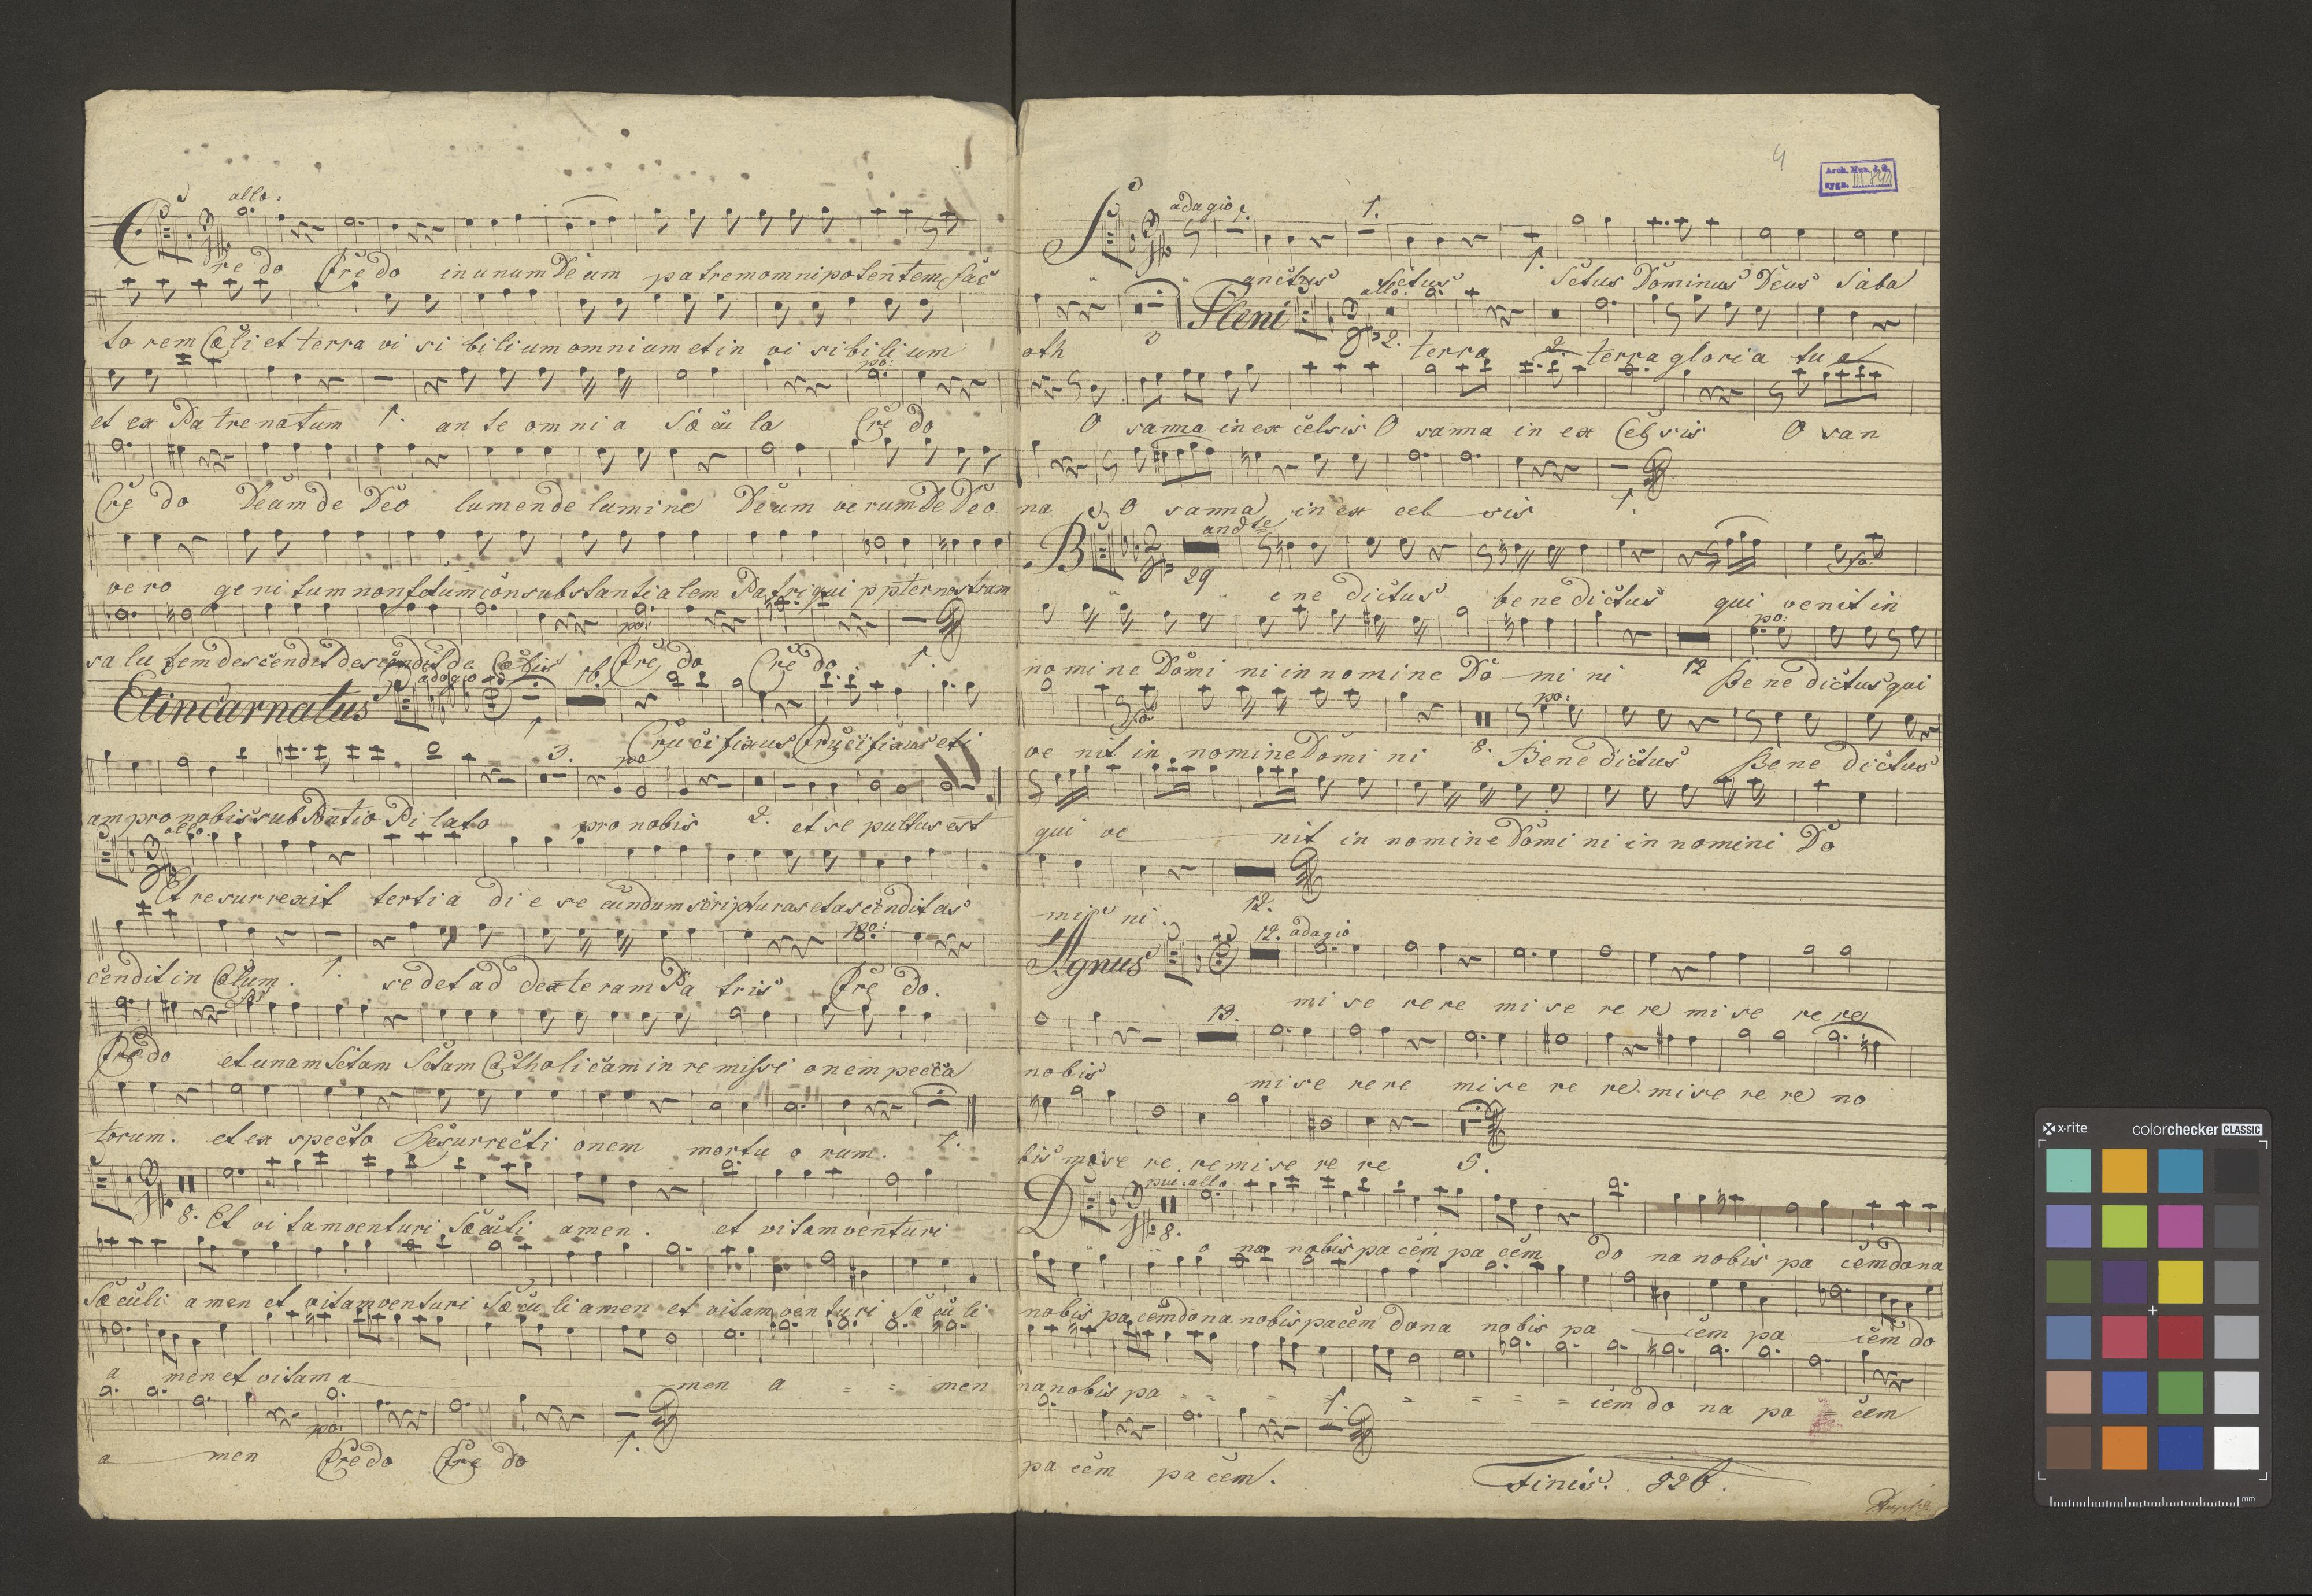 allo:
Credo Credo in unum Deum patrem omnipotentem fac
torem Cœli et terra vi si bilium omnium et in vi si bili um
po:
et ex Pa tre natum 1. an te omni a Sæ cu la Cre do
Cre do Deum de Deo lumen de lumine Deum verum De Deo
vero geni tum non fctum consubstantialem Patri qui ppter nostram
po:
sa lu tem descendit descendit de Cœlis Cre do Cre do 1.
Et incarnatus adagio 1 16.
Cru ci fixus Cruci fixus eti
3. po
am pro nobis sub Pontio Pi lato pro nobis 2. et se pultus est
allo:
Et resurrexit tertia di e se cundum scripturas et ascendit as
po:
cendit in Cœlum. 1. sedet ad dexteram Pa tris Cre do.
Credo et unam Sctam Sctam Catholicam in remissi onem pecca
torum. et ex specto Resurrecti onem mortu o rum. 1.
8. Et vi tam venturi Sæculi amen. et vitam venturi
Sæculi amen et vitam venturi Sæ cu li amen et vitam ven tu ri Sæ cu li
a men et vitam a men a = = men
po:
a men Credo Cre do 1.
4
Arch. Muz. J. G.
sygn. III
adagio 1. 1.
Sanctus Sctus 1. Sctus Dominus Deus Saba
oth Pleni allo: 2. terra 2. terra gloria tua
O sanna in ex celsis O sanna in ex Cel sis O san
na O sanna in ex cel sis 1.
andte
29
Bene dictus bene dictus qui venit in
po:
nomine Domi ni in nomine Do mi ni 12 Bene dictus qui
po:
ve nit in nomine Domi ni 8. Bene dictus Bene dictus
qui ve nit in nomine Domi ni in nomini Do
mi ni. 12.
Agnus 12. adagio
mi se rere mi se re re mi se re re
13.
nobis mi se re re mi se re re mi se re re no
bis mise re re mi se re re 5.
piu: allo
8.
Do na nobis pa cem pa cem do na nobis pa cem dona
nobis pa cem dona nobis pacem dona nobis pa cem pa cem do
na nobis pa = = = = = = = = cem do na pa = cem
1.
pa cem pa cem. Finis. 326.
x-rite colorchecker CLASSIC
mm